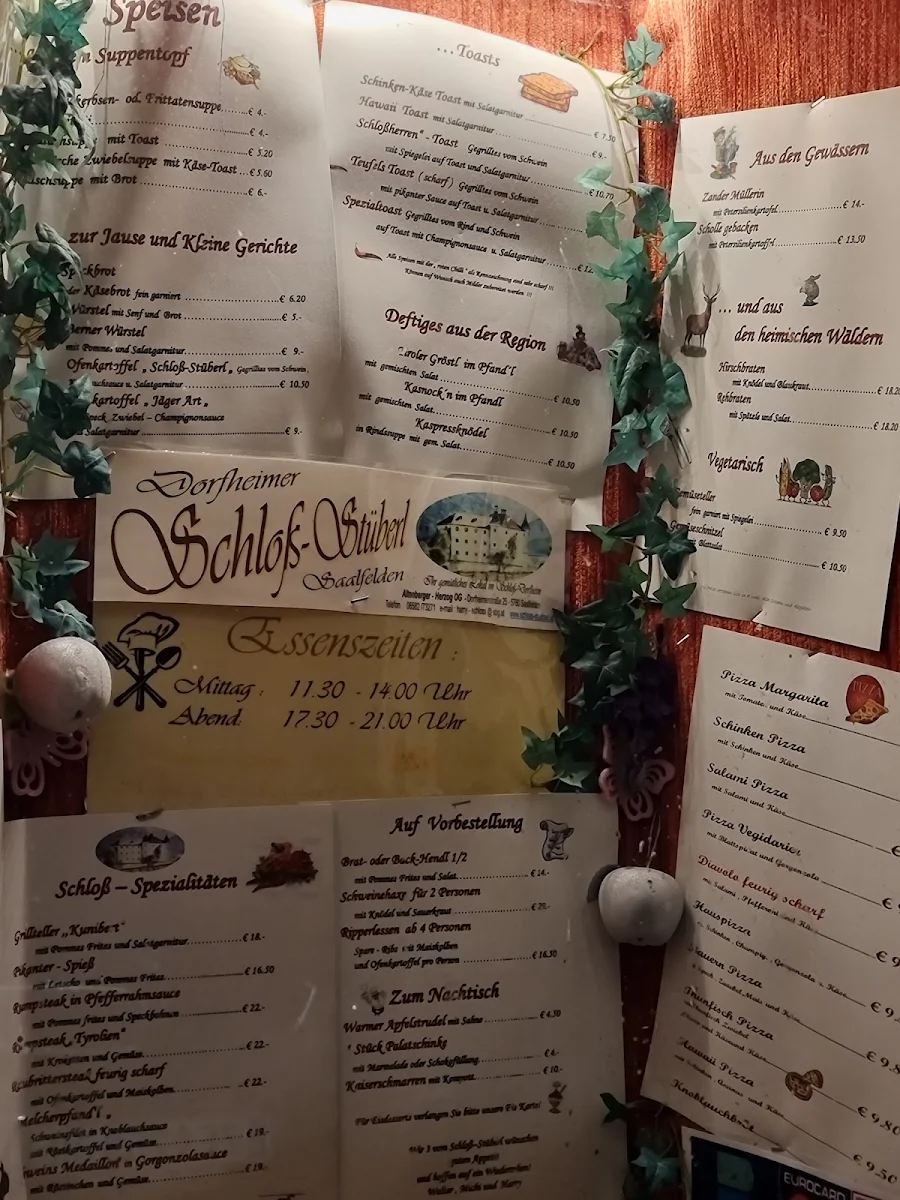 Speisen
Suppentopf
od. Frittatensuppe....€ 4.-
€ 4.-
mit Toast ....€ 5.20
Zwiebelsuppe mit Käse-Toast ...€ 5.60
mit Brot ....€ 6.-
zur Jause und Kleine Gerichte
Käsebrot fein garniert ....€ 6.20
Würstel mit Senf und Brot ....€ 5.-
Berner Würstel
mit Pommes und Salatgarnitur....€ 9.-
Ofenkartoffel „ Schloß-Stüberl „ Gegrilltes vom Schwein,
u. Salatgarnitur....€ 10.50
„ Jäger Art „
Speck Zwiebel – Champignonsauce
Salatgarnitur ....€ 9.-
...Toasts
Schinken-Käse Toast mit Salatgarnitur....€ 7.50
Hawaii Toast mit Salatgarnitur....€ 9.-
Schloßherren" - Toast Gegrilltes vom Schwein
mit Spiegelei auf Toast und Salatgarnitur....€ 10.70
Teufels Toast ( scharf ) Gegrilltes vom Schwein
mit pikanter Sauce auf Toast u. Salatgarnitur....
Spezialtoast Gegrilltes vom Rind und Schwein
auf Toast mit Champignonsauce u. Salatgarnitur....
Alle Speisen mit der „roten Chilli" als Kennzeichnung sind sehr scharf !!!
Können auf Wunsch auch Milder zubereitet werden !!!
Deftiges aus der Region
Tiroler Gröstl im Pfand´l
mit gemischten Salat ....€ 10.50
Kasnock´n im Pfandl
mit gemischten Salat....€ 10.50
Kaspressknödel
in Rindsuppe mit gem. Salat....€ 10.50
Aus den Gewässern
Zander Müllerin
mit Petersilienkartoffel....€ 14.-
Scholle gebacken
mit Petersilienkartoffel....€ 13.50
... und aus
den heimischen Wäldern
Hirschbraten
mit Knödel und Blaukraut....€ 18.20
Rehbraten
mit Spätzle und Salat....€ 18.20
Vegetarisch
Gemüseteller
fein garniert mit Spiegelei ....€ 9.50
Gemüseschnitzel
mit Blattsalat ....€ 10.50
Dorfheimer
Schloß-Stüberl
Saalfelden
Ihr gemütliches Lokal im Schloß-Dorfheim
Altenberger - Herzog OG - Dorfheimerstraße 25 - 5760 Saalfelden
Essenszeiten :
Mittag : 11.30 - 14.00 Uhr
Abend: 17.30 - 21.00 Uhr
PIZZA
Pizza Margarita
mit Tomato und Käse
Schinken Pizza
mit Schinken und Käse
Salami Pizza
mit Salami und Käse
Pizza Vegidaries
mit Blattspinat und Gorgonzola
Diavolo feurig scharf
mit Salami, Pfefferoni und Käse
Hauspizza
Schinken, Champig., Gorgonzola u. Käse
Bauern Pizza
Speck, Zwiebel, Mais und Käse
Thunfisch Pizza
€ 9.8
Hawaii Pizza
Schinken, Ananas und Käse
€ 9.80
Knoblauchbrot
€ 9.50
Schloß – Spezialitäten
Grillteller „Kunibert"
mit Pommes Frites und Salatgarnitur....€ 18.-
Pikanter - Spieß
mit Letscho und Pommes Frites....€ 16.50
Rumpsteak in Pfefferrahmsauce
mit Pommes frites und Speckbohnen ....€ 22-
Rumpsteak „Tyrolien"
mit Kroketten und Gemüse....€ 22.-
feurig scharf
mit Ofenkartoffel und Maiskolben....€ 22.-
Melcherpfand´l „
Schweinsfilet in Knoblauchsauce
mit Röstkartoffel und Gemüse....€ 19.-
Schweins Medaillon in Gorgonzolasauce
mit Röstinchen und Gemüse....€ 19.-
Auf Vorbestellung
Brat- oder Back-Hendl 1/2
mit Pommes Frites und Salat....€ 14.-
Schweinehaxe für 2 Personen
mit Knödel und Sauerkraut ....€ 29.-
Ripperlessen ab 4 Personen
Spare - Ribs mit Maiskolben
und Ofenkartoffel pro Person ....€ 16.50
Zum Nachtisch
Warmer Apfelstrudel mit Sahne ....€ 4.50
Stück Palatschinke
mit Marmelade oder Schokofüllung....€ 4.-
Kaiserschmarren mit Kompott....€ 10.-
Für Eisdesserts verlangen Sie bitte unsere Eis Karte!
Wir vom Schloß-Stüberl wünschen
guten Appetit
und hoffen auf ein Wiedersehen!
Walter , Michi und Harry
EUROCARD